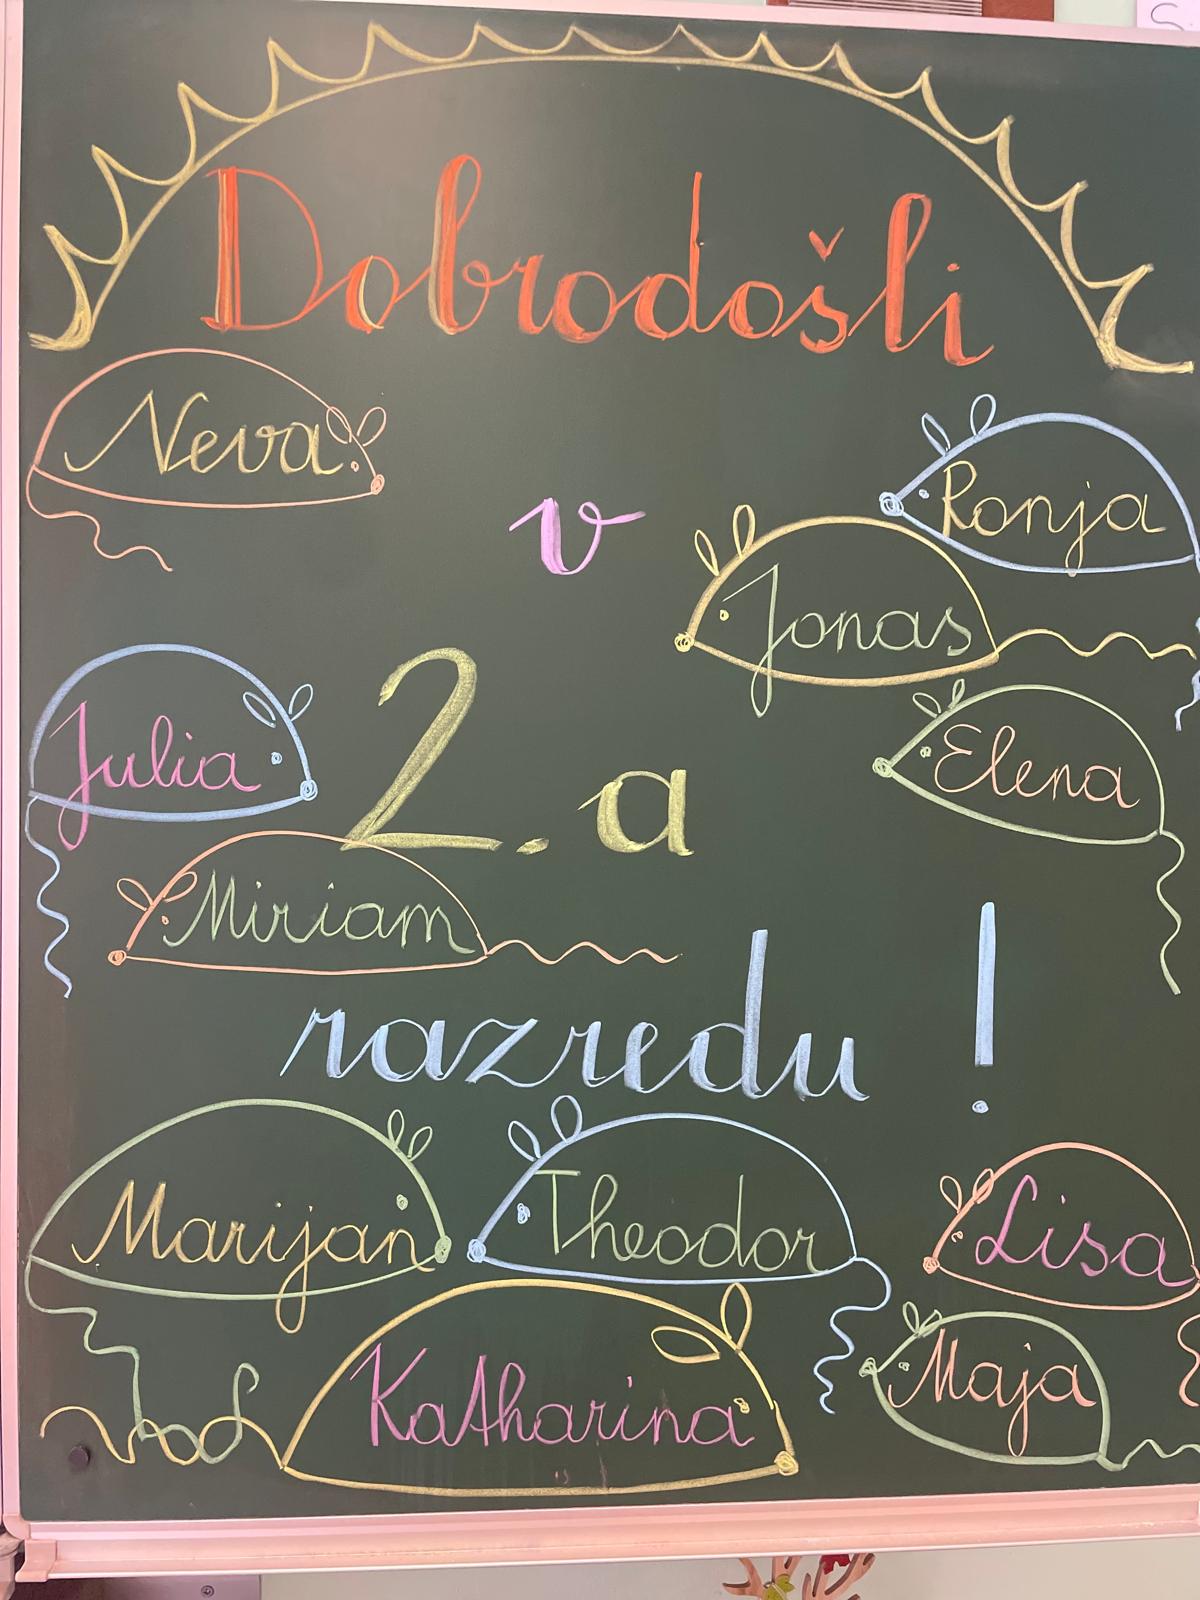 Dobrodošli
Neva
Ronja
v
Jonas
Julia
2. a
Elena
Miriam
razredu !
Marijan
Theodor
Lisa
Katharina
Maja